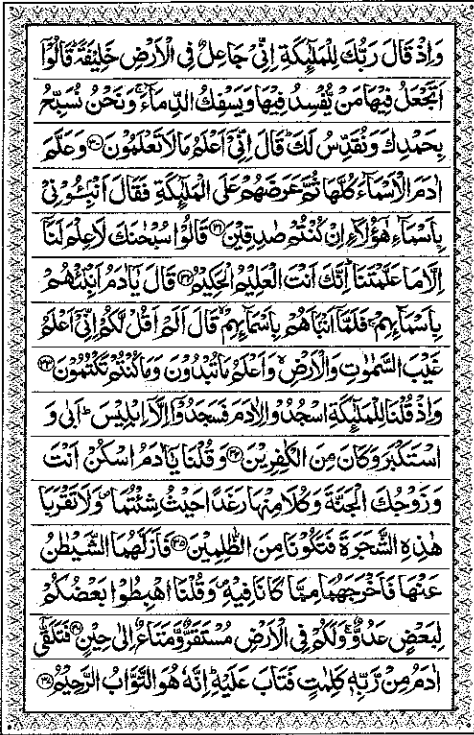 وَاِذْ قَالَ رَبُّكَ لِلْمَلٰٓئِكَةِ اِنِّىْ جَاعِلٌ فِى الْاَرْضِ خَلِيْفَةً ؕ قَالُوْٓا
اَتَجْعَلُ فِيْهَا مَنْ يُّفْسِدُ فِيْهَا وَيَسْفِكُ الدِّمَآءَ ۚ وَنَحْنُ نُسَبِّحُ
بِحَمْدِكَ وَنُقَدِّسُ لَكَ ؕ قَالَ اِنِّىْٓ اَعْلَمُ مَا لَا تَعْلَمُوْنَ ﴿۳۰﴾ وَعَلَّمَ
اٰدَمَ الْاَسْمَآءَ كُلَّهَا ثُمَّ عَرَضَهُمْ عَلَى الْمَلٰٓئِكَةِ فَقَالَ اَنْۢبِـُٔوْنِىْ
بِاَسْمَآءِ هٰٓؤُلَآءِ اِنْ كُنْتُمْ صٰدِقِيْنَ ﴿۳۱﴾ قَالُوْا سُبْحٰنَكَ لَا عِلْمَ لَنَآ
اِلَّا مَا عَلَّمْتَنَا ؕ اِنَّكَ اَنْتَ الْعَلِيْمُ الْحَكِيْمُ ﴿۳۲﴾ قَالَ يٰٓاٰدَمُ اَنْۢبِئْهُمْ
بِاَسْمَآئِهِمْ ۚ فَلَمَّآ اَنْۢبَاَهُمْ بِاَسْمَآئِهِمْ ۙ قَالَ اَلَمْ اَقُلْ لَّكُمْ اِنِّىْٓ اَعْلَمُ
غَيْبَ السَّمٰوٰتِ وَالْاَرْضِ ۙ وَاَعْلَمُ مَا تُبْدُوْنَ وَمَا كُنْتُمْ تَكْتُمُوْنَ ﴿۳۳﴾
وَاِذْ قُلْنَا لِلْمَلٰٓئِكَةِ اسْجُدُوْا لِاٰدَمَ فَسَجَدُوْٓا اِلَّآ اِبْلِيْسَ ؕ اَبٰى وَ
اسْتَكْبَرَ وَكَانَ مِنَ الْكٰفِرِيْنَ ﴿۳۴﴾ وَقُلْنَا يٰٓاٰدَمُ اسْكُنْ اَنْتَ
وَزَوْجُكَ الْجَنَّةَ وَكُلَا مِنْهَا رَغَدًا حَيْثُ شِئْتُمَا ۪ وَلَا تَقْرَبَا
هٰذِهِ الشَّجَرَةَ فَتَكُوْنَا مِنَ الظّٰلِمِيْنَ ﴿۳۵﴾ فَاَزَلَّهُمَا الشَّيْطٰنُ
عَنْهَا فَاَخْرَجَهُمَا مِمَّا كَانَا فِيْهِ ۪ وَقُلْنَا اهْبِطُوْا بَعْضُكُمْ
لِبَعْضٍ عَدُوٌّ ۚ وَلَكُمْ فِى الْاَرْضِ مُسْتَقَرٌّ وَّمَتَاعٌ اِلٰى حِيْنٍ ﴿۳۶﴾ فَتَلَقّٰٓى
اٰدَمُ مِنْ رَّبِّهٖ كَلِمٰتٍ فَتَابَ عَلَيْهِ ؕ اِنَّهٗ هُوَ التَّوَّابُ الرَّحِيْمُ ﴿۳۷﴾